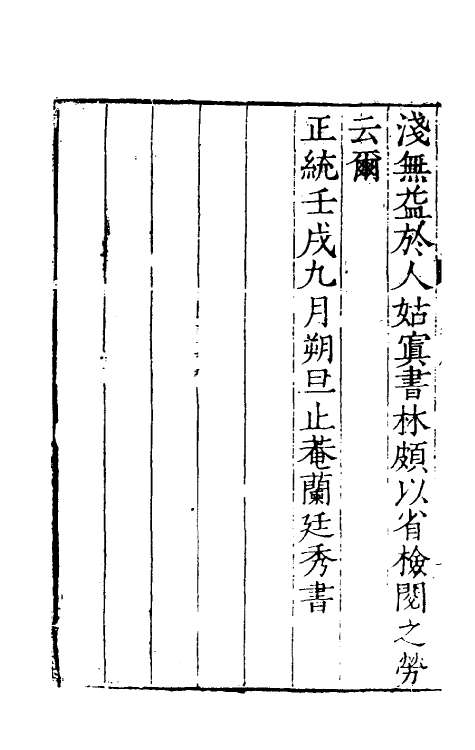 淺無益於人姑寘書林頗以省檢閱之勞
云爾
正統壬戌九月朔旦止菴蘭廷秀書